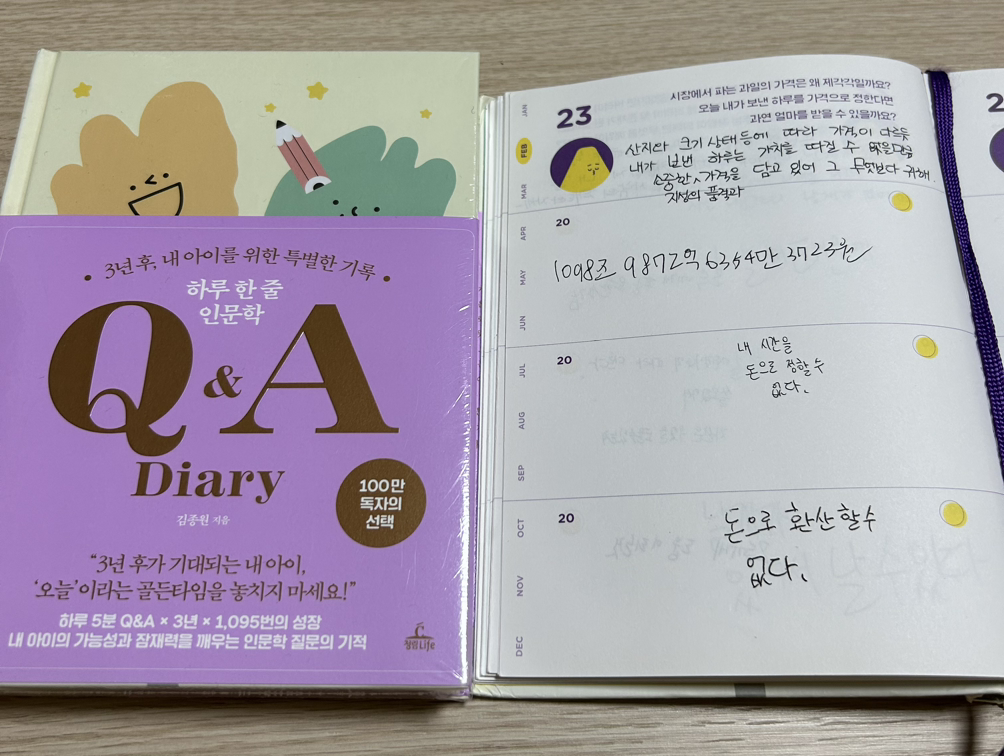 3년 후, 내 아이를 위한 특별한 기록
하루 한 줄
인문학
Q & A
Diary
100만
독자의
선택
김종원 지음
“3년 후가 기대되는 내 아이,
‘오늘’이라는 골든타임을 놓치지 마세요!”
하루 5분 Q&A × 3년 × 1,095번의 성장
내 아이의 가능성과 잠재력을 깨우는 인문학 질문의 기적
청림Life
JAN
FEB
MAR
APR
MAY
JUN
JUL
AUG
SEP
OCT
NOV
DEC
23
시장에서 파는 과일의 가격은 왜 제각각일까요?
오늘 내가 보낸 하루를 가격으로 정한다면
과연 얼마를 받을 수 있을까요?
산지와 크기 상태 등에 따라 가격이 다르듯
내가 보낸 하루는 가치를 따질 수 없을만큼
소중한 가격을 담고 있어 그 무엇보다 귀해.
지성의 품격과
20
1098조 9872억 6354만 3723원
20
내 시간을
돈으로 정할 수
없다.
20
돈으로 환산할 수
없다.
2